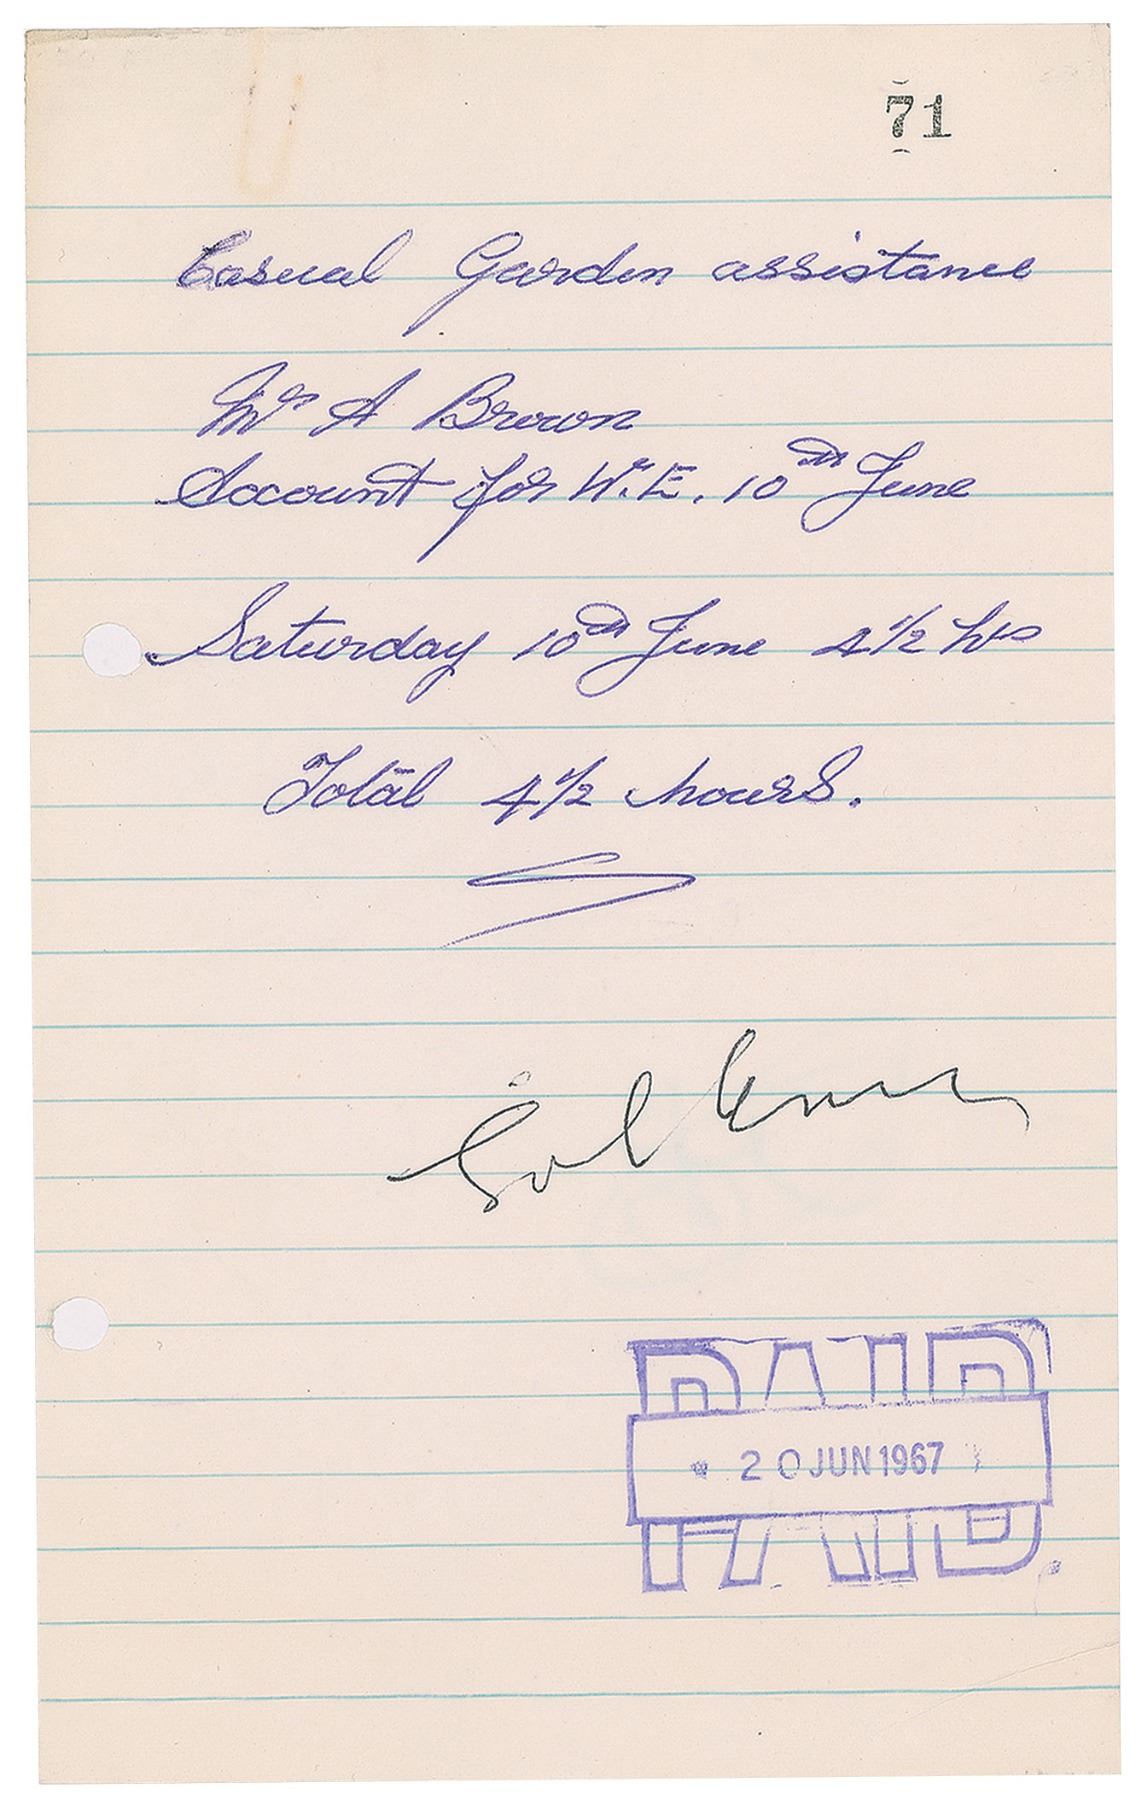 71
Casual Garden assistance
Mr A Brown
Account for W.E. 10th June
Saturday 10th June 4 1/2 hrs
Total 4 1/2 hours.
PAID
20 JUN 1967